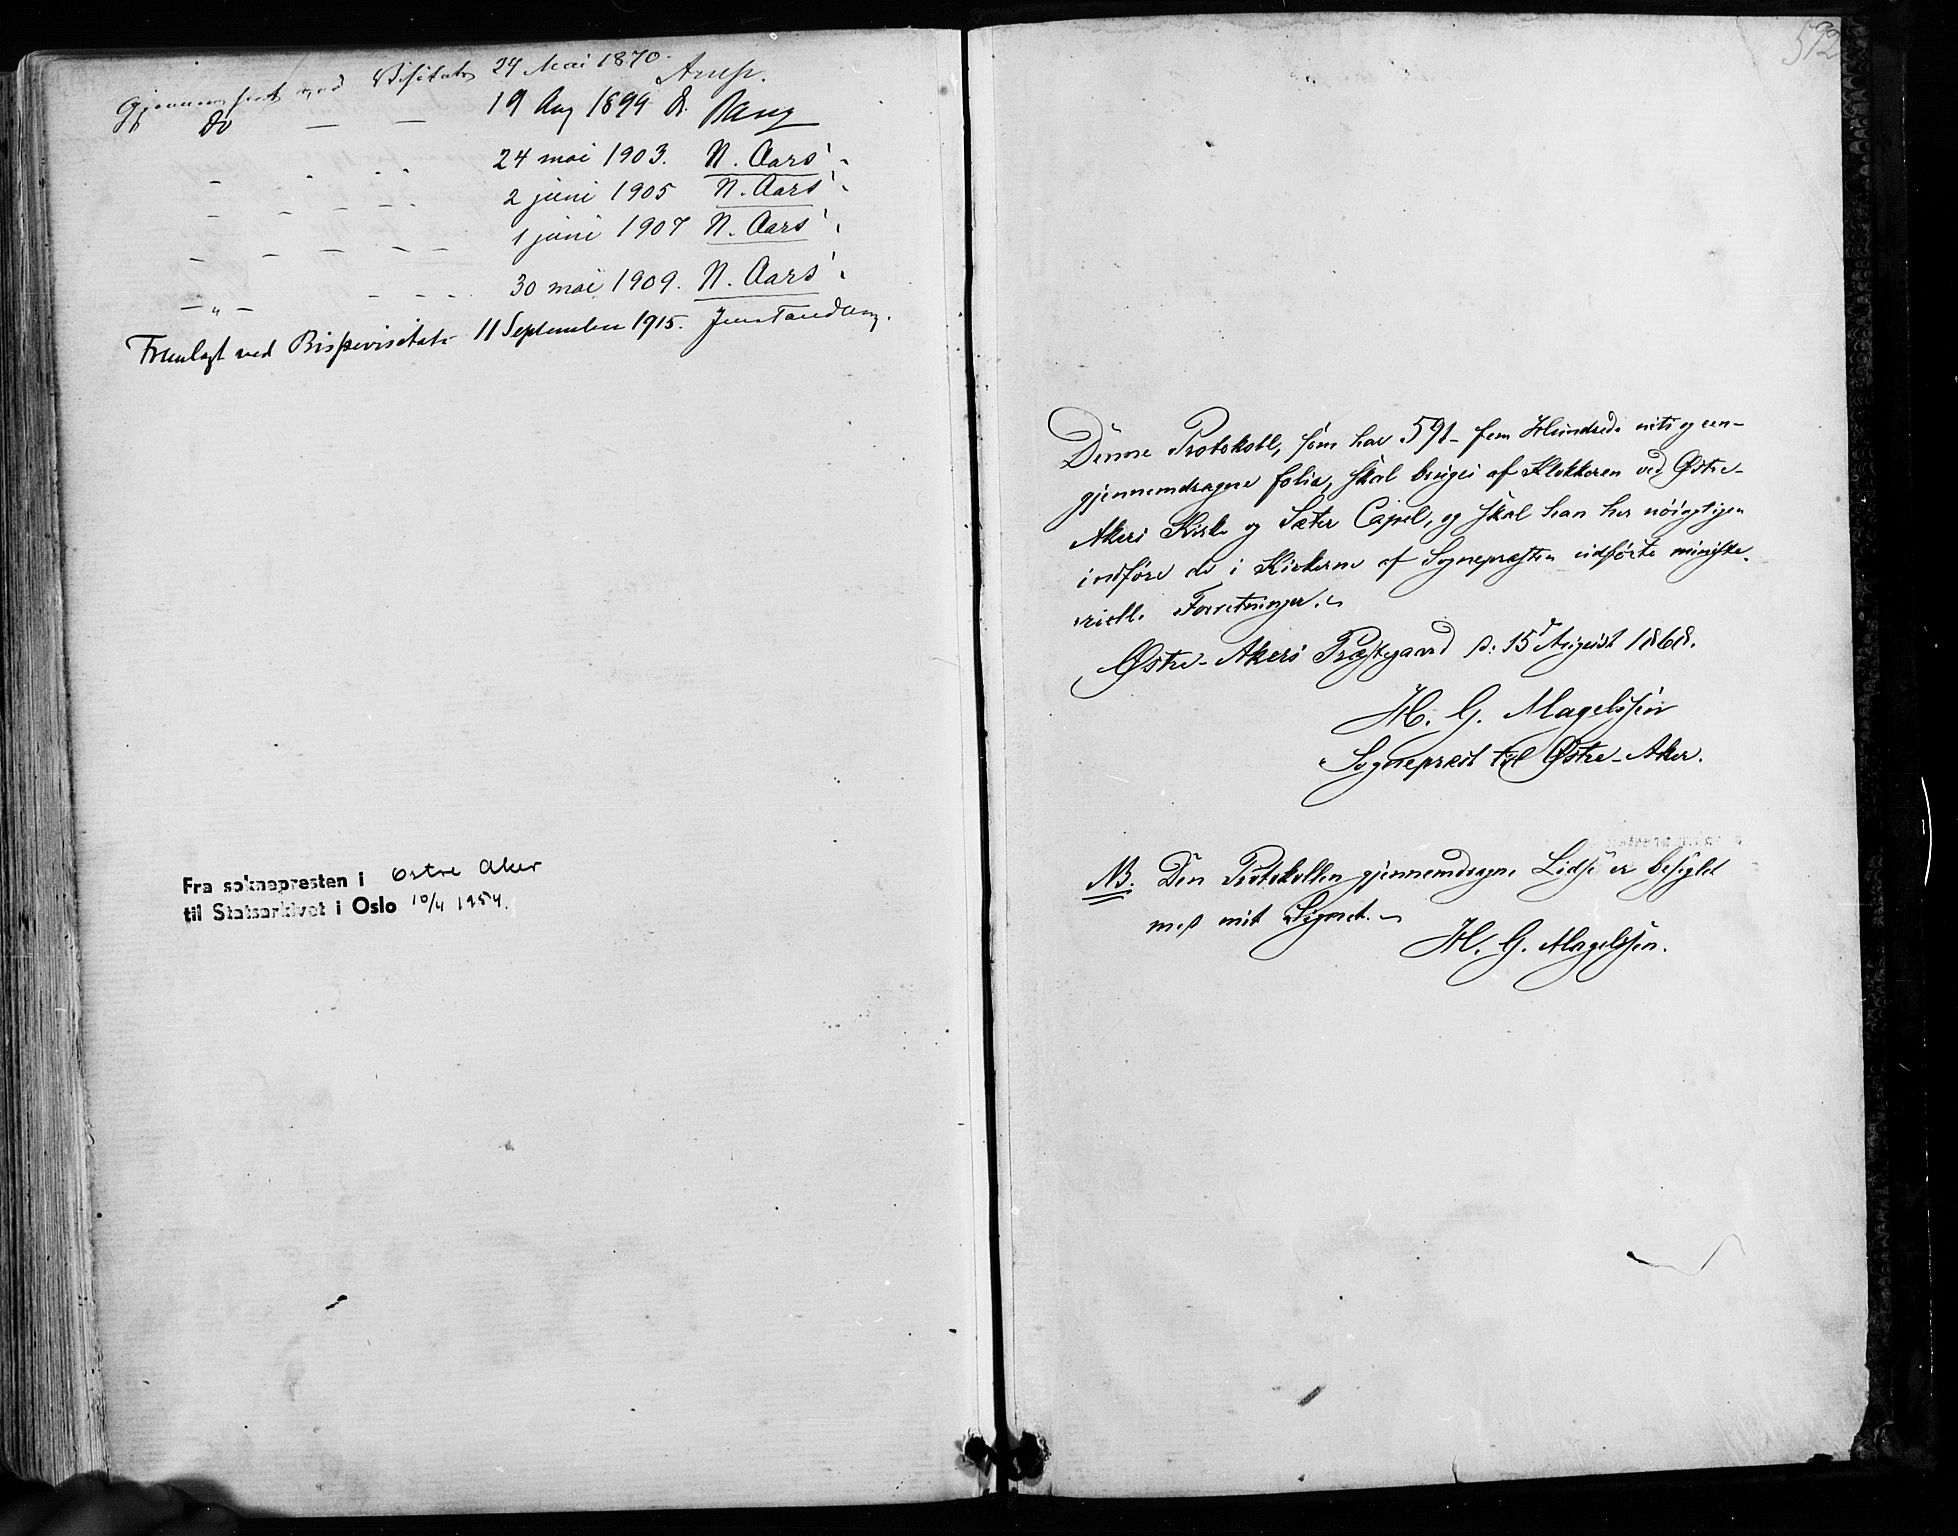 Gjennemseet ved Visitats 24 Mai 1870. Arup.
Do — — 19 Aug 1899 A. Bang
- - - - 24 mai 1903. N. Aars.
- - - - - 2 juni 1905 N. Aars.
- - - - - 1 juni 1907 N. Aars.
— " — - - - 30 mai 1909. N. Aars.
Fremlagt ved Bispevisitats 11 September 1915. Jens Tandberg.
Fra soknepresten i Østre Aker
til Statsarkivet i Oslo 10/4 1954.
592
Denne Protokoll, som har 591 - fem Hundrede niti og een -
gjennemdragne folia, skal bruges af Klokkeren ved Østre-
Akers Kirke og Sæter Capel, og skal han her nöiagtigen
indføre de i Kirkerne af Sognepræsten udførte ministe-
rielle Forretninger.
Østre-Akers Præstegaard d: 15 August 1868.
H. G. Magelssen
Sognepræst til Østre-Aker.
NB. Den Protokollen gjennemdragne Lidse er beseglet
med mit Signet.
H. G. Magelssen.